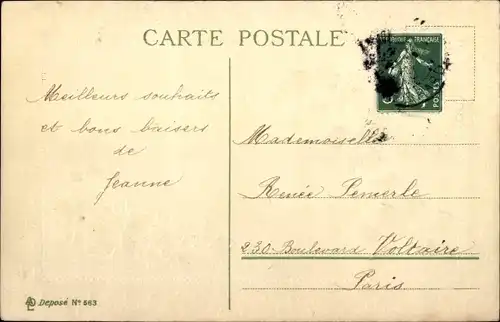 CARTE POSTALE
Meilleurs souhaits
et bons baisers
de
Jeanne
Mademoiselle
Renée Pemerle
230 Boulevard Voltaire
Paris
Déposé No 563